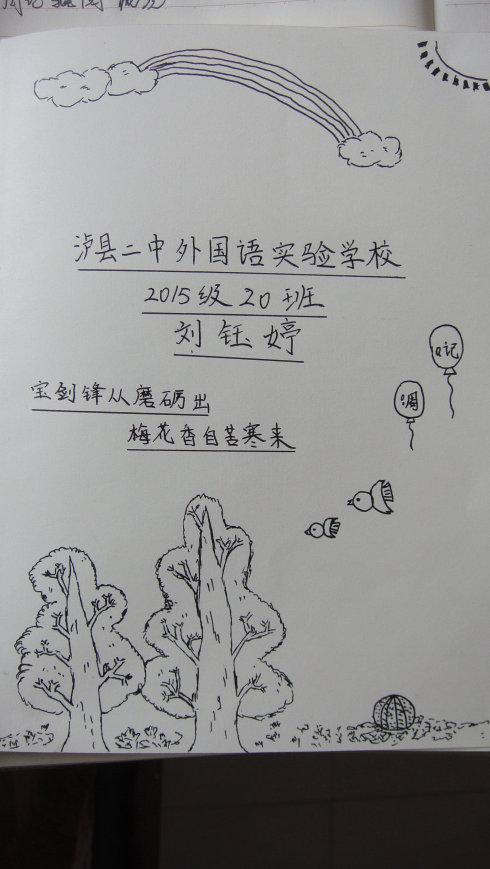 泸县二中外国语实验学校
2015级20班
刘钰婷
记
周
宝剑锋从磨砺出
梅花香自苦寒来